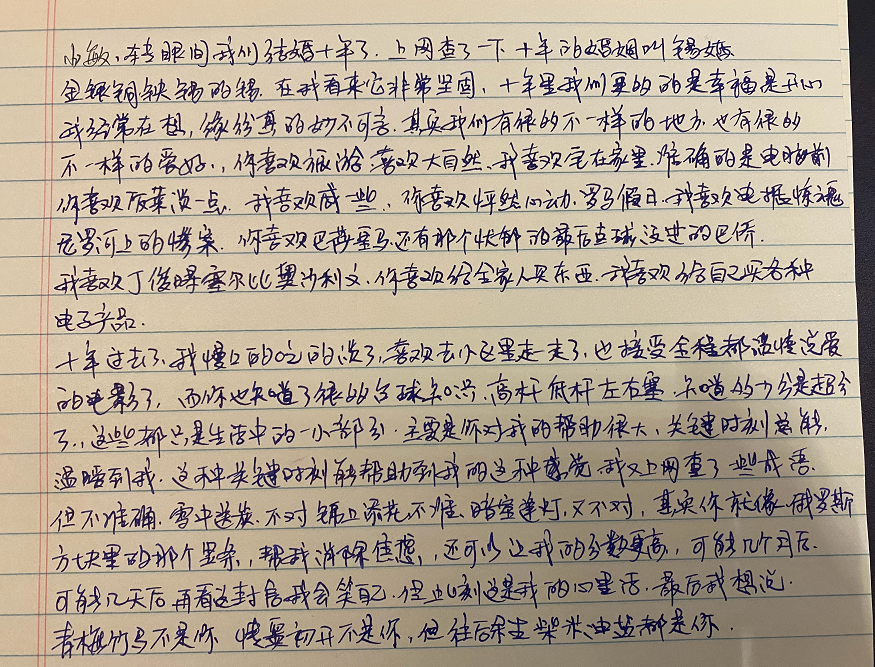 小敏，转眼间我们结婚十年了．上网查了一下十年的婚姻叫锡婚
金银铜铁锡的锡．在我看来它非常坚固，十年里我们更多的是幸福是开心
我经常在想，缘份真的妙不可言．其实我们有很多不一样的地方也有很多
不一样的爱好．，你喜欢旅游喜欢大自然、我喜欢宅在家里．准确的是电脑前
你喜欢饭菜淡一点．我喜欢咸一些，你喜欢怦然心动．罗马假日．我喜欢电锯惊魂
尼罗河上的惨案．你喜欢巴蒂罗马还有那个忧郁的最后点球没进的巴乔．
我喜欢丁俊晖塞尔比奥沙利文、你喜欢给全家人买东西．我喜欢给自己买各种
电子产品．
十年过去了．我慢慢的吃的淡了，喜欢去小区里走一走了，也接受全程都温情说爱
的电影了，而你也知道了很多台球知识．高杆低杆左右塞．知道多少分是超分
了．，这些都只是生活中的一小部分．主要是你对我的帮助很大、关键时刻总能．
温暖到我．这种关键时刻能帮助到我的这种感觉我又上网查了一些成语．
但不准确．雪中送炭．不对锦上添花不准、暗室逢灯，又不对，其实你就像俄罗斯
方块里的那个竖条，帮我消除焦虑，，还可以让我的分数更高，可能几个月后．
可能几天后再看这封信我会笑自己．但此刻这是我的心里话．最后我想说．
青梅竹马不是你　情窦初开不是你，但往后余生柴米油盐都是你．